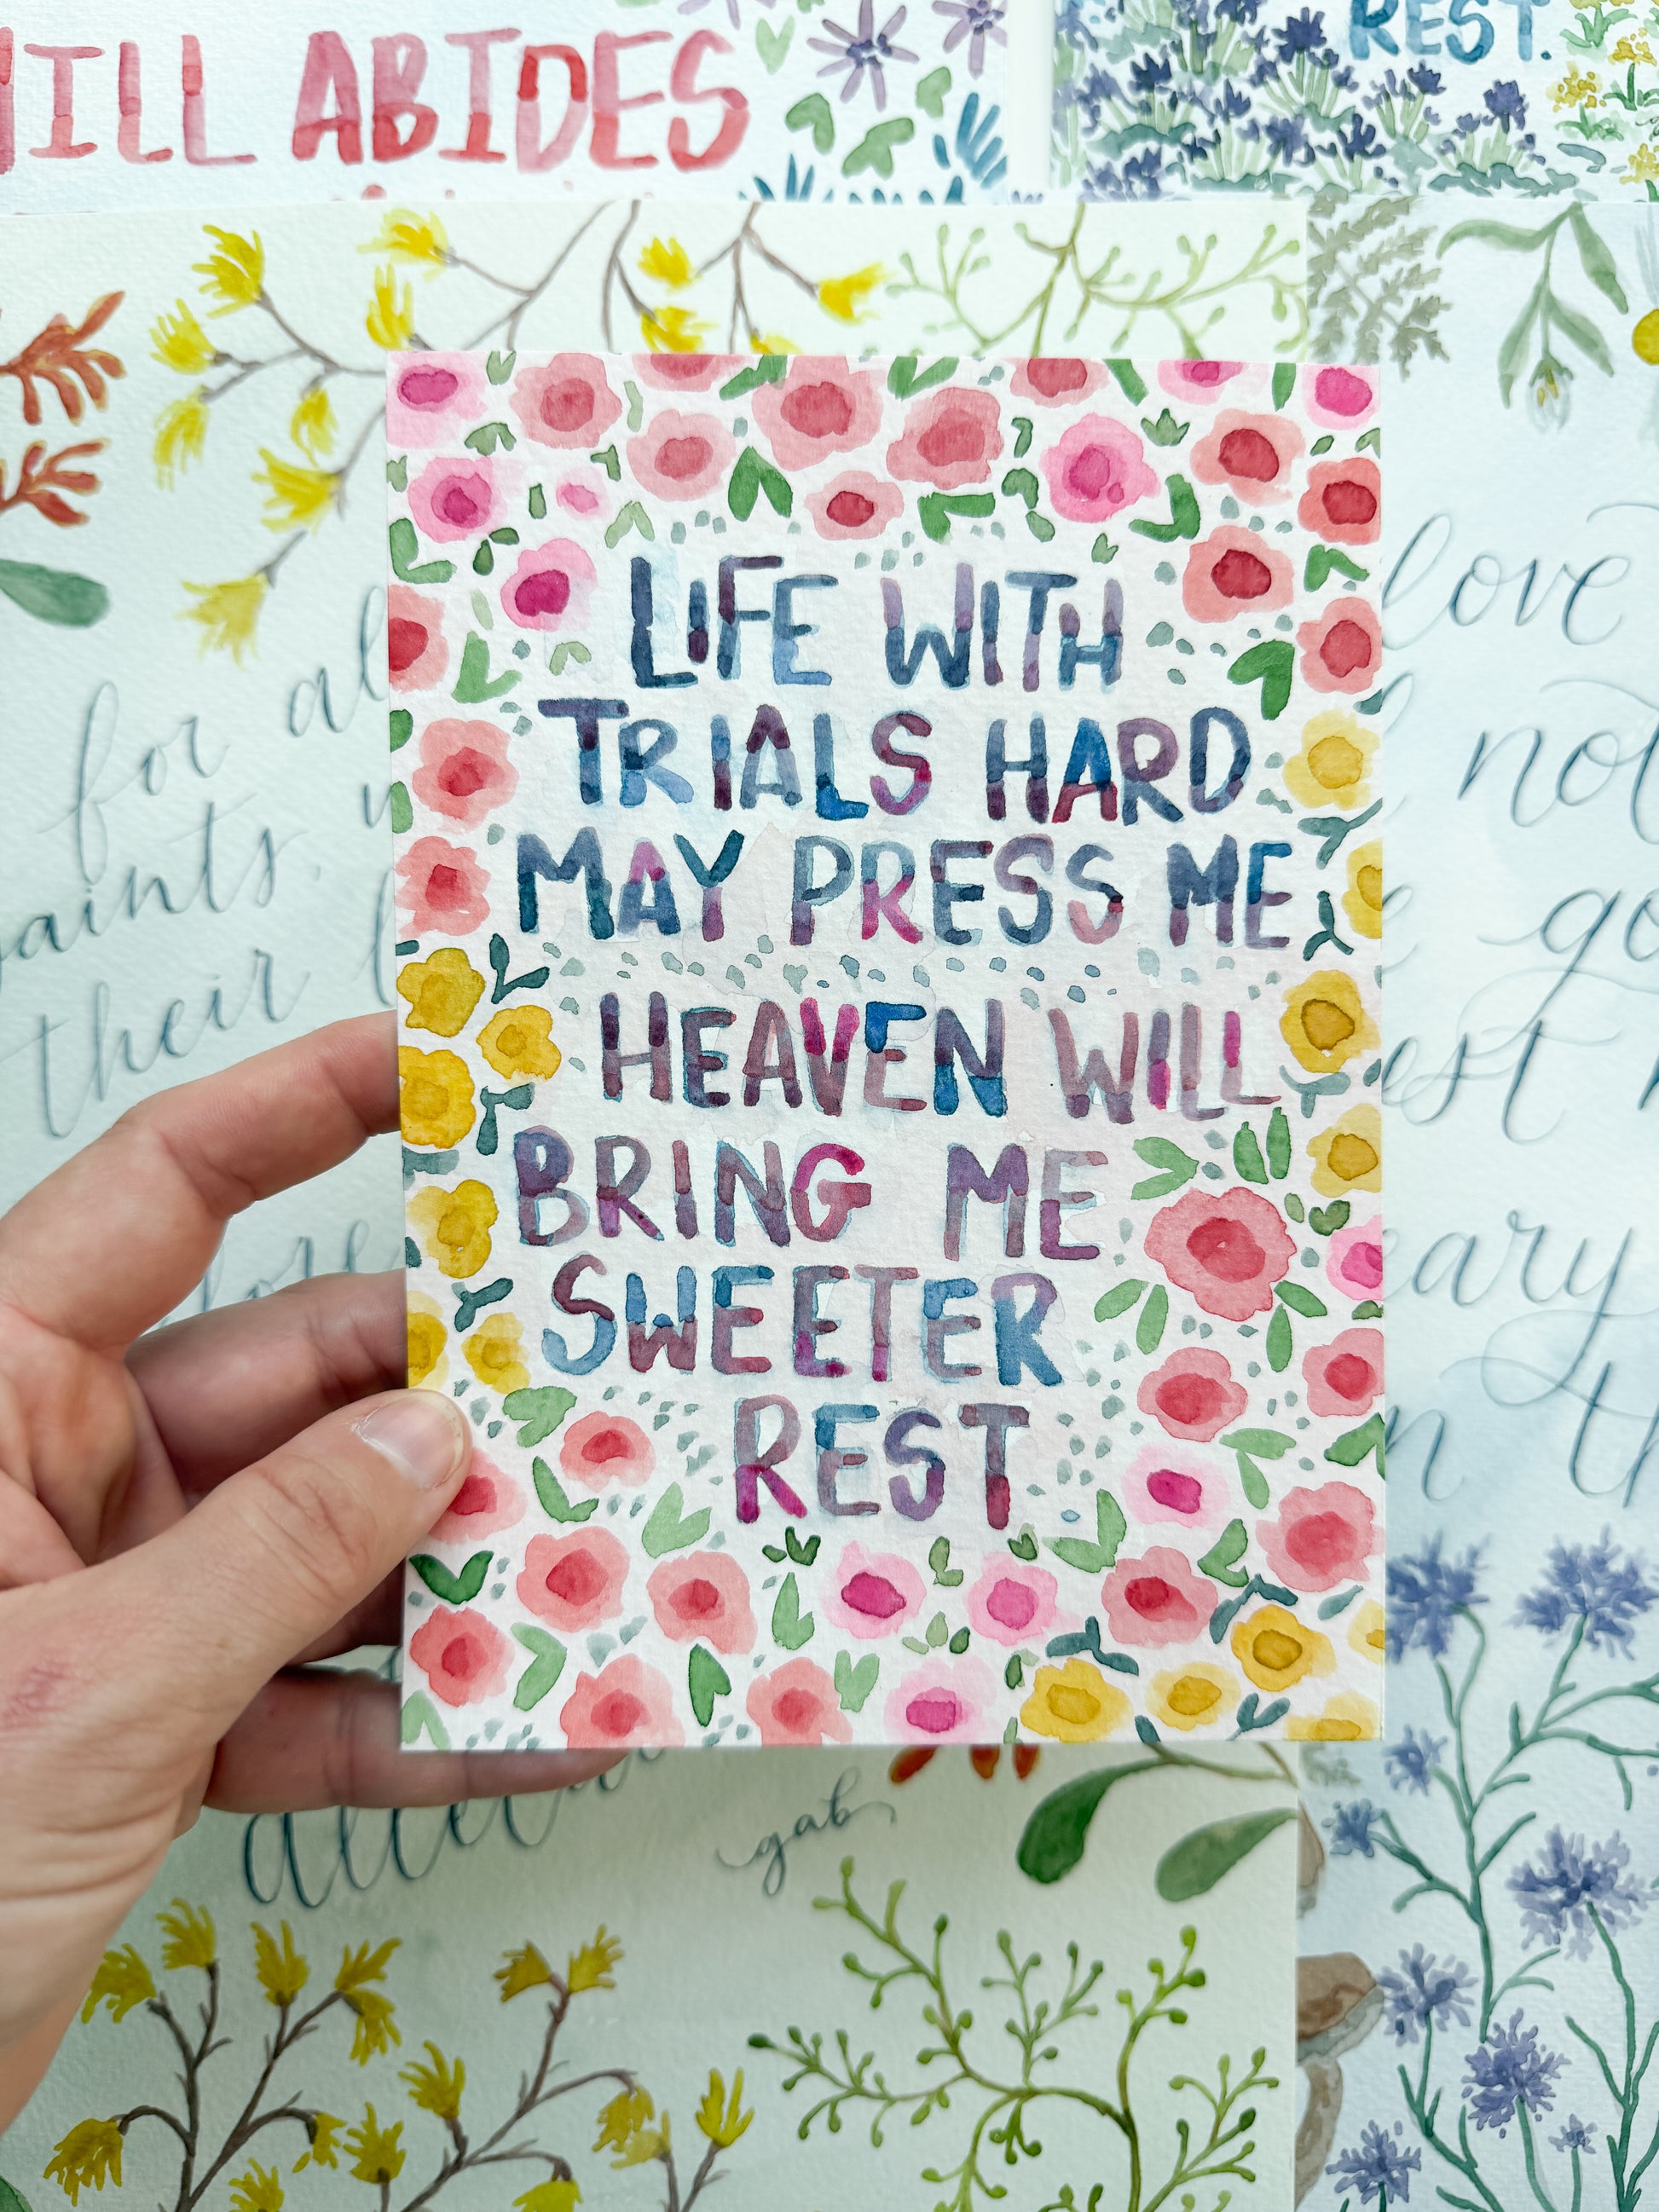 WILL ABIDES
REST.
LIFE WITH
TRIALS HARD
MAY PRESS ME
HEAVEN WILL
BRING ME
SWEETER
REST
for al
love
not
saints,
their l
go
est
eary
gab